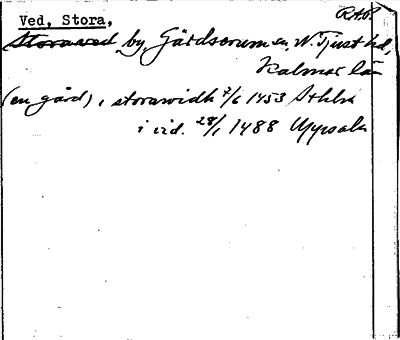 Ved, Stora,
R.A.P.
Storawed by, Gärdserum sn, N. Tjust hd,
Kalmar län
(en gård), storawidh 7/6 1453 Sthlm
i vid. 28/1 1488 Uppsala